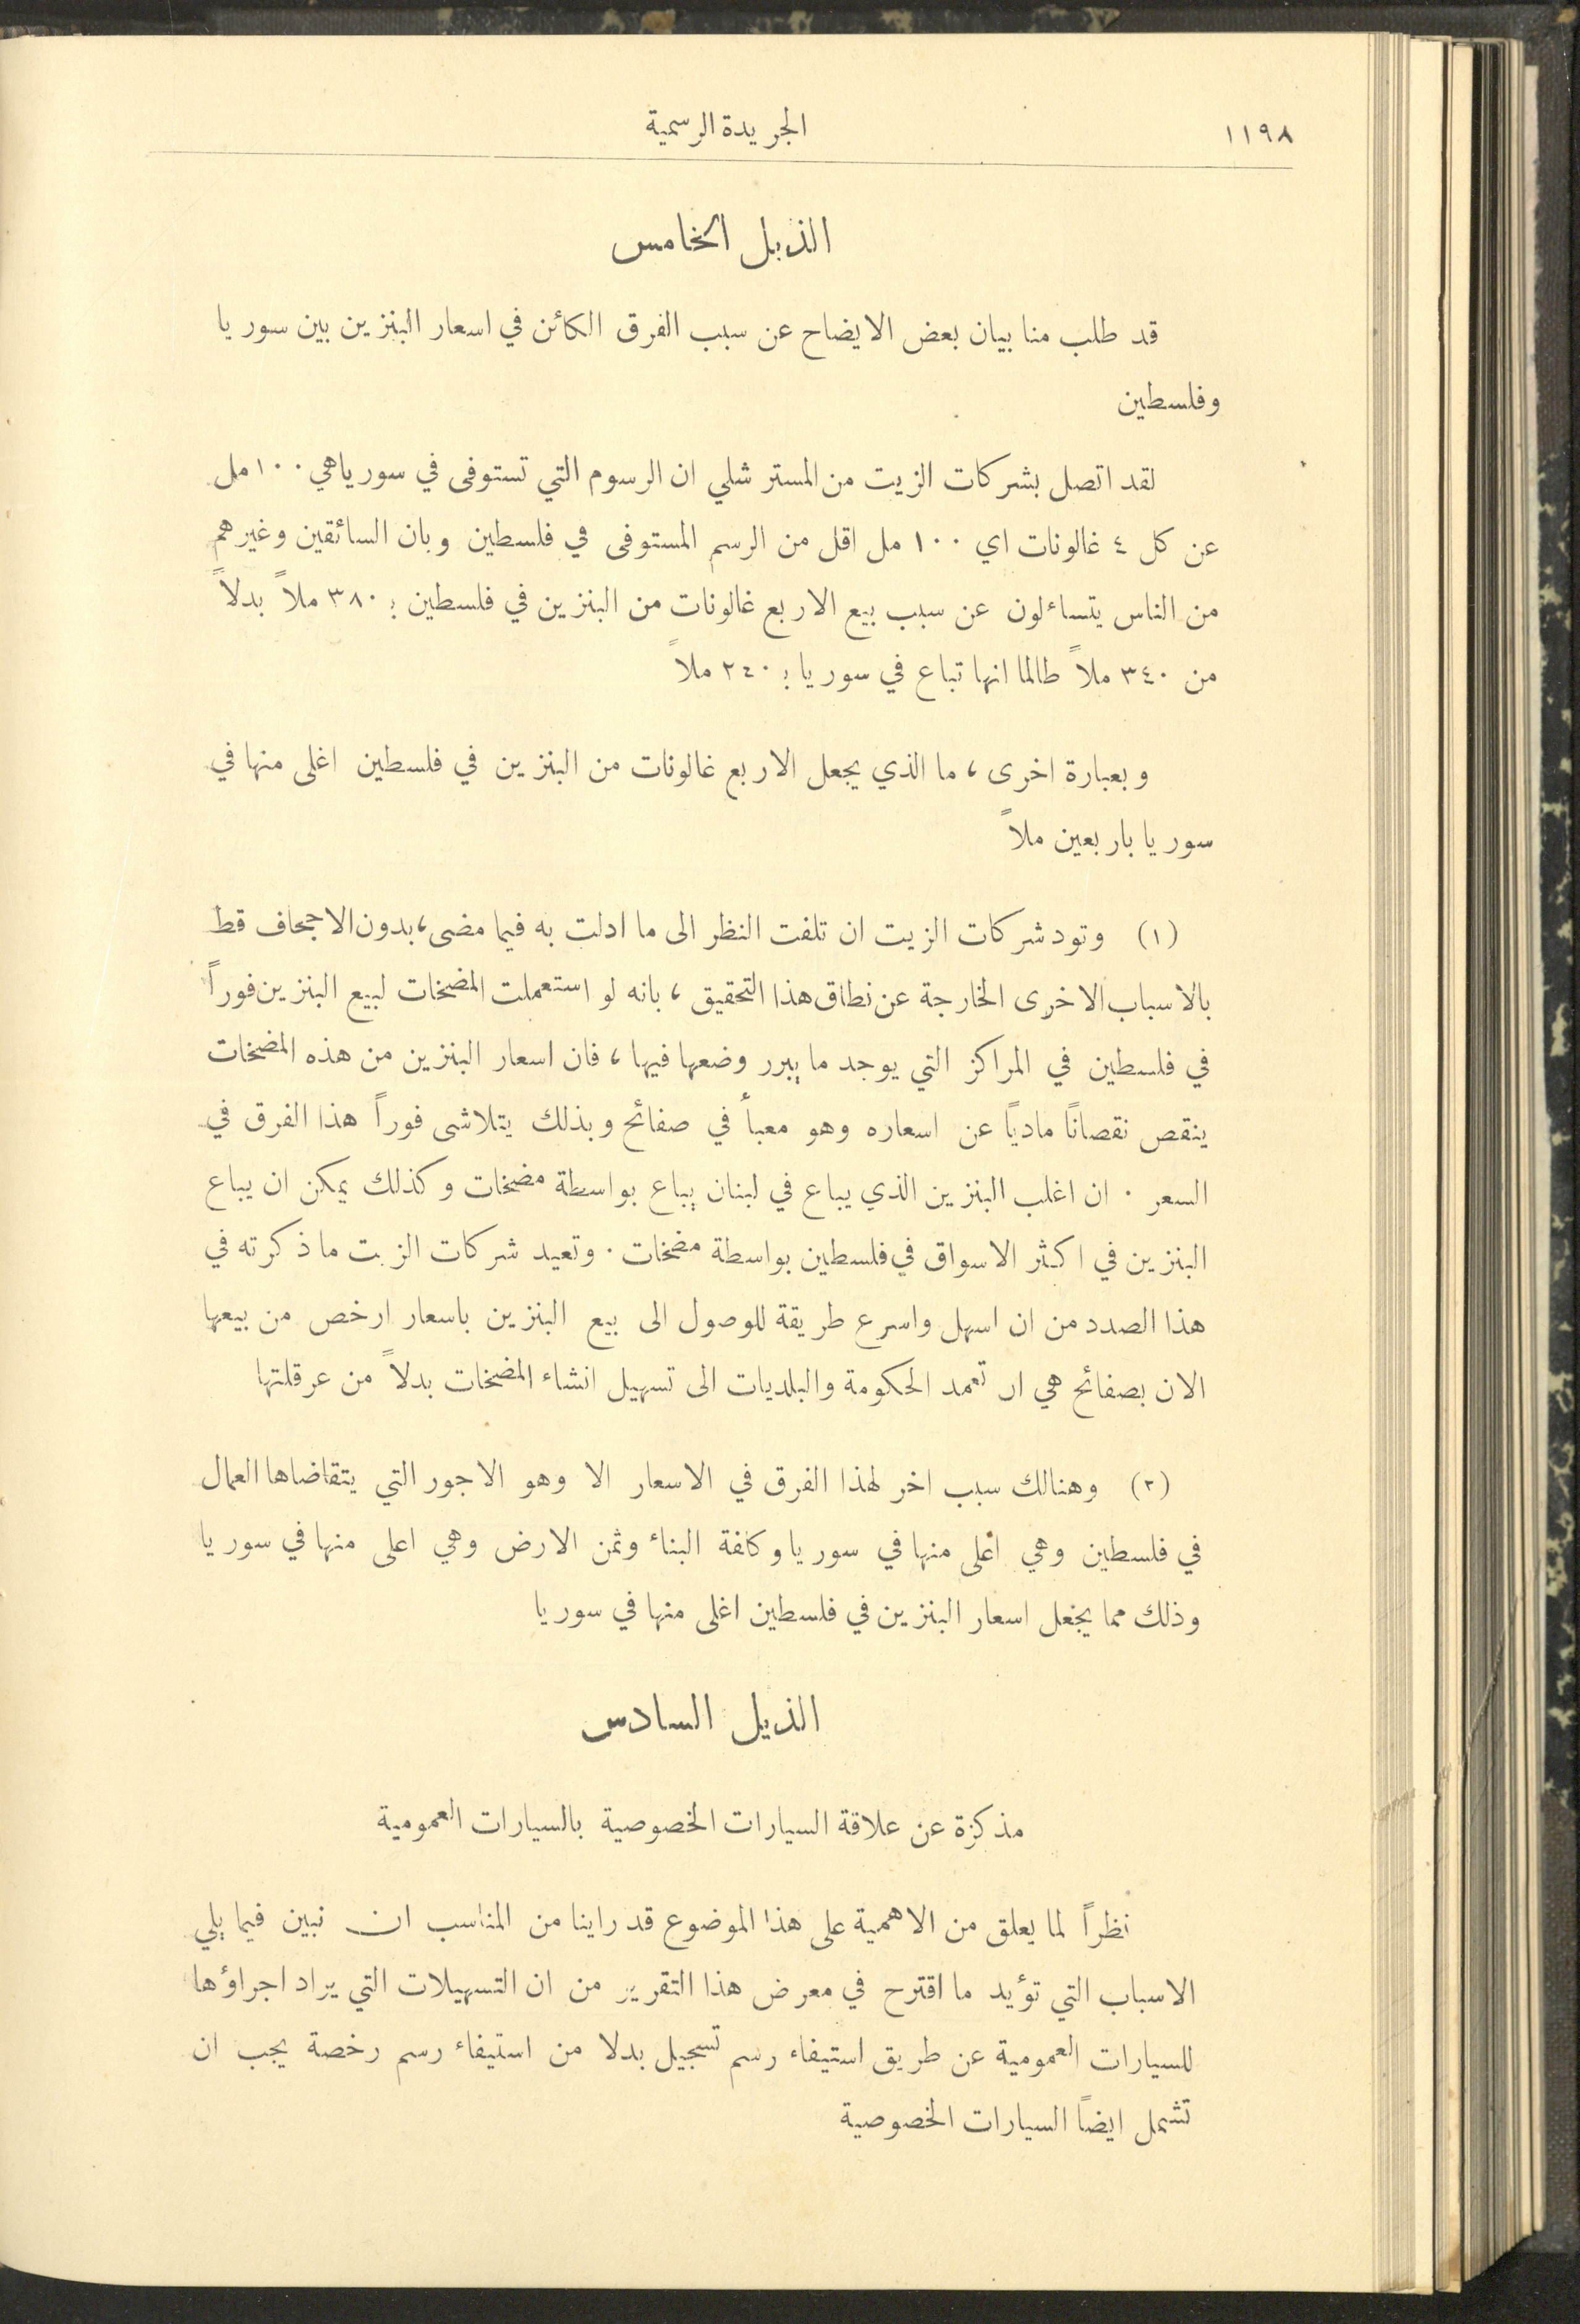 ١١٩٨
الجريدة الرسمية
الذيل الخامس
قد طلب منا بيان بعض الايضاح عن سبب الفرق الكائن في اسعار البنزين بين سوريا
وفلسطين
لقد اتصل بشركات الزيت من المستر شلي ان الرسوم التي تستوفى في سوريا هي ١٠٠ مل
عن كل ٤ غالونات اي ١٠٠ مل اقل من الرسم المستوفى في فلسطين وبان السائقين وغيرهم
من الناس يتساءلون عن سبب بيع الاربع غالونات من البنزين في فلسطين بـ ٣٨٠ ملاً بدلاً
من ٣٤٠ ملاً طالما انها تباع في سوريا بـ ٢٤٠ ملاً
وبعبارة اخرى، ما الذي يجعل الاربع غالونات من البنزين في فلسطين اغلى منها في
سوريا باربعين ملاً
(١) وتود شركات الزيت ان تلفت النظر الى ما ادلت به فيما مضى، بدون الاجحاف قط
بالاسباب الاخرى الخارجة عن نطاق هذا التحقيق، بانه لو استعملت المضخات لبيع البنزين فوراً
في فلسطين في المراكز التي يوجد ما يبرر وضعها فيها، فان اسعار البنزين من هذه المضخات
ينقص نقصاناً مادياً عن اسعاره وهو معبأ في صفائح وبذلك يتلاشى فوراً هذا الفرق في
السعر . ان اغلب البنزين الذي يباع في لبنان يباع بواسطة مضخات وكذلك يمكن ان يباع
البنزين في اكثر الاسواق في فلسطين بواسطة مضخات . وتعيد شركات الزيت ما ذكرته في
هذا الصدد من ان اسهل واسرع طريقة للوصول الى بيع البنزين باسعار ارخص من بيعها
الان بصفائح هي ان تعمد الحكومة والبلديات الى تسهيل انشاء المضخات بدلاً من عرقلتها
(٢) وهنالك سبب اخر لهذا الفرق في الاسعار الا وهو الاجور التي يتقاضاها العمال
في فلسطين وهي اغلى منها في سوريا وكافة البناء وثمن الارض وهي اعلى منها في سوريا
وذلك مما يجعل اسعار البنزين في فلسطين اغلى منها في سوريا
الذيل السادس
مذكرة عن علاقة السيارات الخصوصية بالسيارات العمومية
نظراً لما يعلق من الاهمية على هذا الموضوع قد راينا من المناسب ان نبين فيما يلي
الاسباب التي تؤيد ما اقترح في معرض هذا التقرير من ان التسهيلات التي يراد اجراؤها
للسيارات العمومية عن طريق استيفاء رسم تسجيل بدلا من استيفاء رسم رخصة يجب ان
تشمل ايضاً السيارات الخصوصية